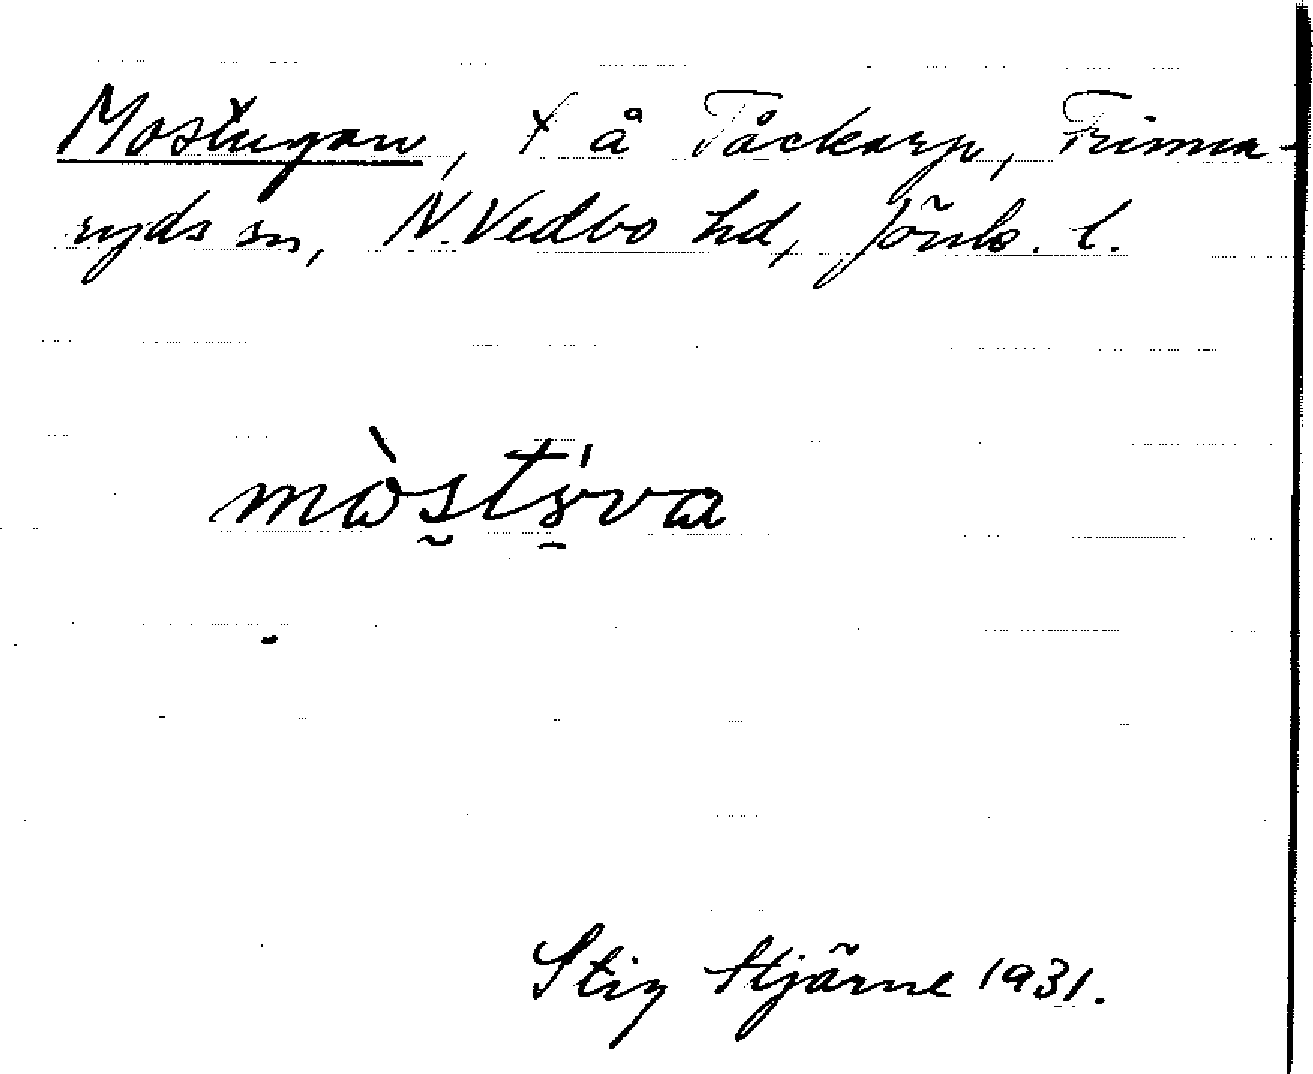 Mostugan, t å Tåckarp, Frinna-
ryds sn, N. Vedbo hd, Jönk. l.
mòsts̱'va
Stig Hjärne 1931.